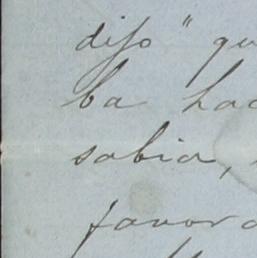 dijo " qu
ba hac
sabia,
favora